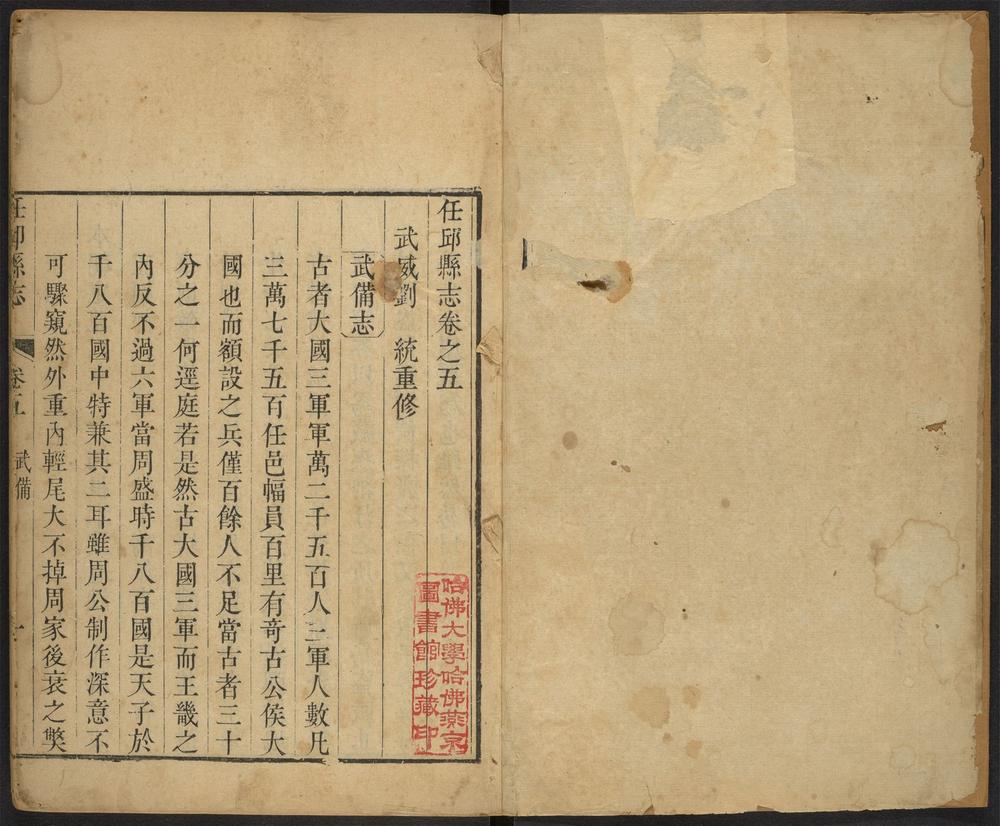 任邱縣志卷之五
武威劉　統重修
武備志
古者大國三軍軍萬二千五百人三軍人數凡
三萬七千五百任邑幅員百里有奇古公侯大
國也而額設之兵僅百餘人不足當古者三十
分之一何逕庭若是然古大國三軍而王畿之
內反不過六軍當周盛時千八百國是天子於
千八百國中特兼其二耳雖周公制作深意不
可驟窺然外重內輕尾大不掉周家後衰之獘
任邱縣志
卷五
武備
一
哈佛大學哈佛燕京
圖書館珍藏印